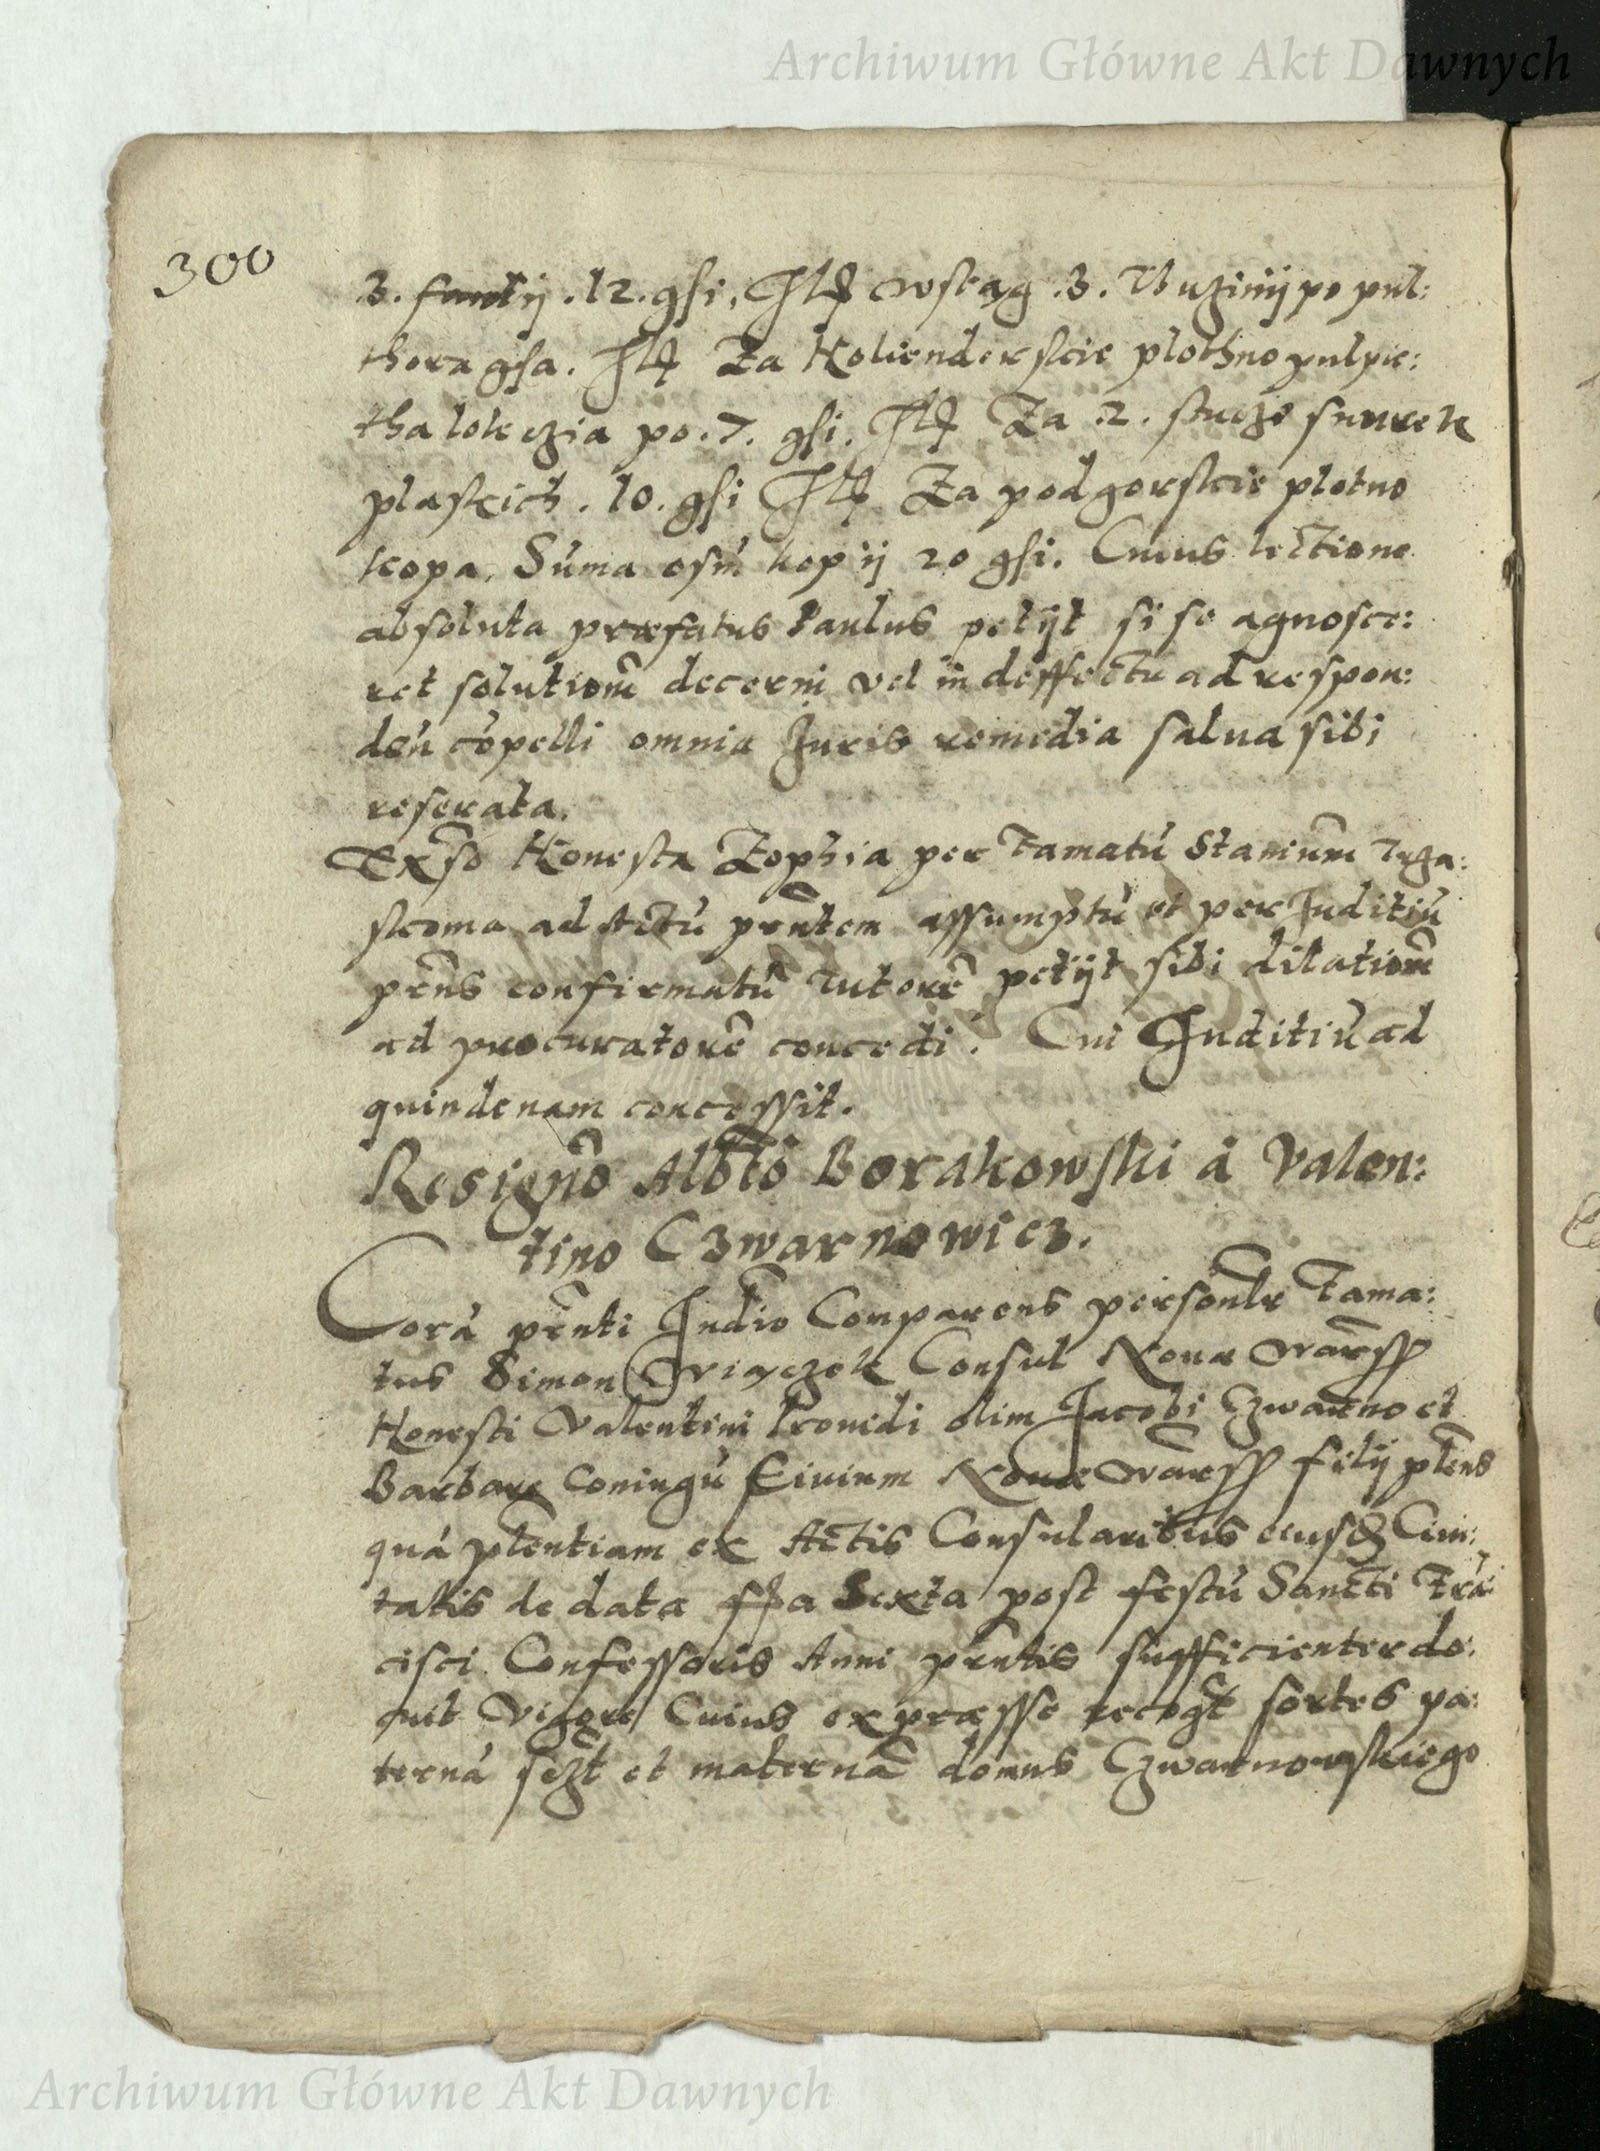 Archiwum Główne Akt Dawnych
300
3. funtij .12. gſi, Itꝫ wstąg .3. Vuziny po pul:
thora gſa. Itꝫ Za Kolienderskie plothno pulpie:
tha lokczia po .7. gſi. Itꝫ Za .2. stucze snurek
plaskich .10. gſi Itꝫ Za podgorskie plotno
kopa. Sūma osm̄ kop ij 20 gſi. Cuius lectione
absoluta præfatus Paulus petijt si se agnosce:
ret solutionē decerni vel in deffectu ad respon:
den̄ cōpelli omnia Juris remedia salua sibi
reseruata.
Exſo Honesta Zophia per Famatū Stanium
skoma ad Actū prn̄tem assumptū et per Juditiū
prn̄s confirmatū Tutorē petijt sibi dilationē
ad procuratorē concedi. Cui Juditiū ad
quindenam concessit.
Resigno Albto Borakowski á Valen:
tino Czwarnowicz.
Corā prn̄ti Judīo Comparens personlr Fama:
tus Simon Wiączek Consul Nouæ Warsz
Honesti Valentini Prouidi olim Jacobi Czwarno et
Barbaræ Coniugū Ciuium Nouæ Warsz filij pln̄s
quā plen̄tiam ex Actis Consularibus eiusd Ciui:
tatis de data fria Sexta post festū Sancti Frā:
cisci Confessoris Anni prn̄tis sufficienter do:
cuit Vigore Cuius expræsse recogt sortes pa:
ternā sczt et maternā domus Czwarnowskiego
Archiwum Główne Akt Dawnych